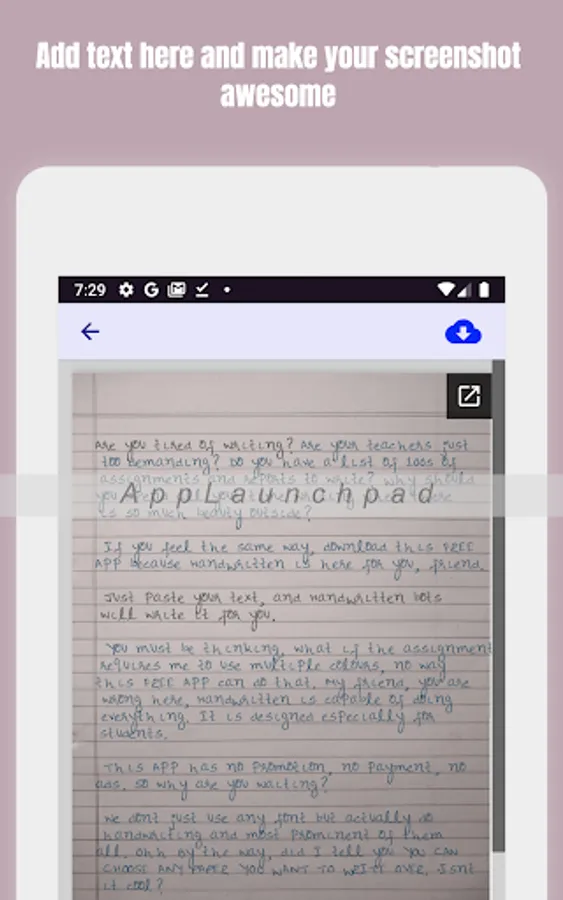 Add text here and make your screenshot
awesome
7:29
Are you tired of writing? Are your teachers just
too demanding? Do you have a list of loss of
assignments and reports to write? Why should
you
AppLaunchpad
is so much beauty outside?
If you feel the same way, download this FREE
APP because Handwritten is here for you, friend.
Just paste your text, and Handwritten bots
will write it for you.
You must be thinking, what if the assignment
requires me to use multiple colours, no way
this FREE APP can do that. My friend, you are
wrong here, Handwritten is capable of doing
everything. It is designed especially for
students.
This APP has no promotion, no payment, no
ads, so why are you waiting?
We dont just use any font but actually do
handwriting and most prominent of them
all. Ohh by the way, did I tell you YOU CAN
CHOOSE ANY PAPER YOU WANT TO WRITE OVER. Isnt
it cool?